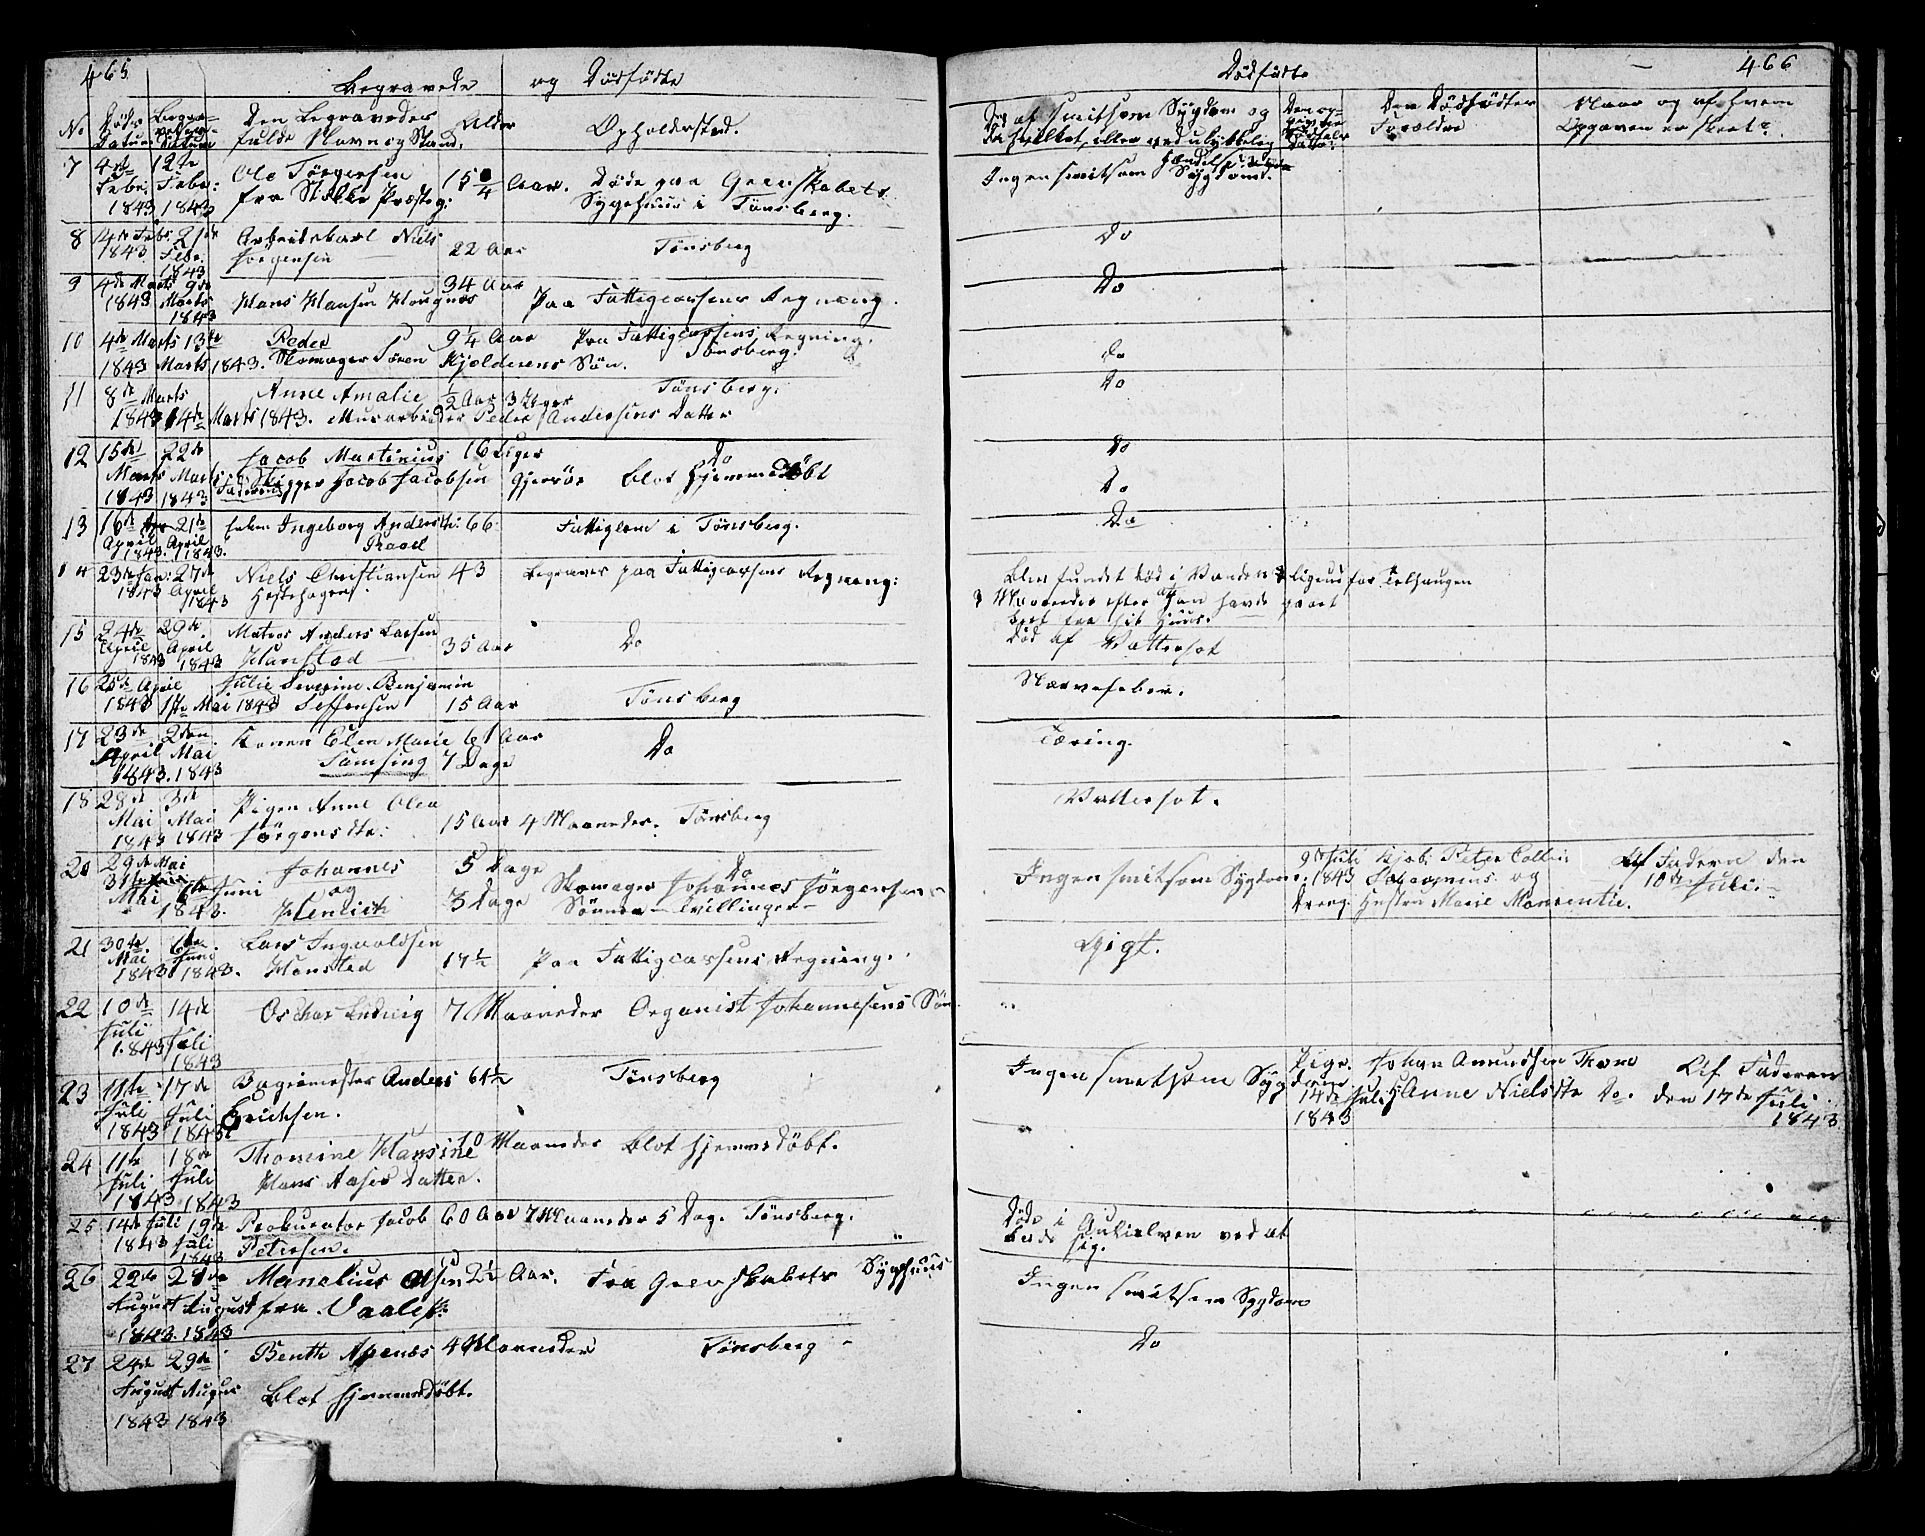 465
Begravede og Dødfødte
No Døds Datum Begravelses Datum Den Begravedes fulde Navn og Stand. Alder Opholdersted.
7 4de Febr. 1843 12te Febr: 1843 Ole Jørgensen fra Stokke Præsteg: 15 3/4 Aar. Døde paa Grevskabets Sygehuus i Tønsberg.
8 14de Febr 1843 21de Febr. 1843 Arbeidskarl Niels Jørgensen 22 Aar Tønsberg
9 4de Marts 1843 9de Marts 1843 Hans Hansen Hougnæs 34 Aar Paa Fattigcassens Regning.
10 4de Marts 1843 13de Marts 1843. Peder Skomager Søren Kjølderens Søn. 9 1/4 Aar Paa Fattigcassens Regning. Tønsberg.
11 8de Marts 1843 14de Marts 1843. Anne Amalie Murarbeider Peder Andersens Datter 1/2 Aar 3 Uger Tønsberg.
12 15de Marts 1843 22de Marts 1843 Jacob Martinius Faderen Skipper Jacob Jacobsen Gjersøe 16 Uger Do blot hjemmedøbt
13 16de April 1843. 21de April 1843. Enken Ingeborg Andersd: Raael 66 Fattiglem i Tønsberg.
14 23de Jan: 1843 27de April 1843 Niels Christiansen Hestehagen. 43 Begraves paa Fattigcassens Regning:
15 24de April 1843 29de April 1843 Matros Anders Larsen Hanstad 35 Aar Do
16 25de April 1843 1ste Mai 1843 Julie Severine Benjamin Steffensen 15 Aar Tønsberg
17 23de April 1843. 2den Mai 1843 Konen Elen Marie Samsing 61 Aar 7 Dage Do
18 28de Mai 1843 3de Mai 1843 Pigen Anne Olea Jørgensdtr: 15 Aar 4 Maaneder. Tønsberg
20 29de Mai 31te Mai 6te Juni 1843. Johannes og Henrich 5 Dage 3 Dage Do Skomager Johannes Jørgensens Sønner – Tvillinger –
21 30te Mai 1843 6te Juni 1843. Lars Ingvaldsen Hansted 17 1/2 Paa Fattigcassens Regning.
22 10de Juli 1843 14de Juli 1843 Oschar Ludvig 7 Maaneder Organist Johannesens Søn
23 11te Juli 1843 17de Juli 1843 Bagermester Anders Erichsen. 61 1/2 Tønsberg
24 11te Juli 1843 18de Juli 1843 Thomine Hansine Hans Aases Datter. 10 Maaneder blot hjemmedøbt.
25 14de Juli 1843 19de Juli 1843 Prokurator Jacob Petersen. 60 Aar 7 Maaneder 5 Dag. Tønsberg.
26 22de August 1843. 28de August 1843 Manelius Olsen fra Vaale Pr: 21 Aar. Fra Grevskabets Sygehuus
27 24de August 1843 29de August 1843 Benthe Apenæs Blot hjemmedøbt. 4 Maaneder Tønsberg
Dødfødte 466
Død af smitsom Sygdom og da hvilken, eller ved ulykkelig Hændelse Den Dødfødtes Forældre Naar og af hvem Opgaven er skeet.
Ingen smitsom Sygdom.
Do
Do
Do
Do
Do
Do
Do
Blev fundet død i Vandet ligeud for Teglhaugen
3 Maaneder efter at han havde gaaet
bort fra sit Huus.
Død af Vattersot
Nervefeber.
Tæring.
Vattersot.
Ingen smitsom Sygdom. 9de Juli 1843 Dreng. Kjøb: Peter Hustru Marie Af Faderen den 10de Juli.
Gigt.
Ingen smitsom Sygdom Pige. 14de Juli 1843 Johan Amundsen Anne Nielsdtr Do. Af Faderen den 17de Juli 1843
Døde i ved at sig.
Ingen smitsom Sygdom
Do